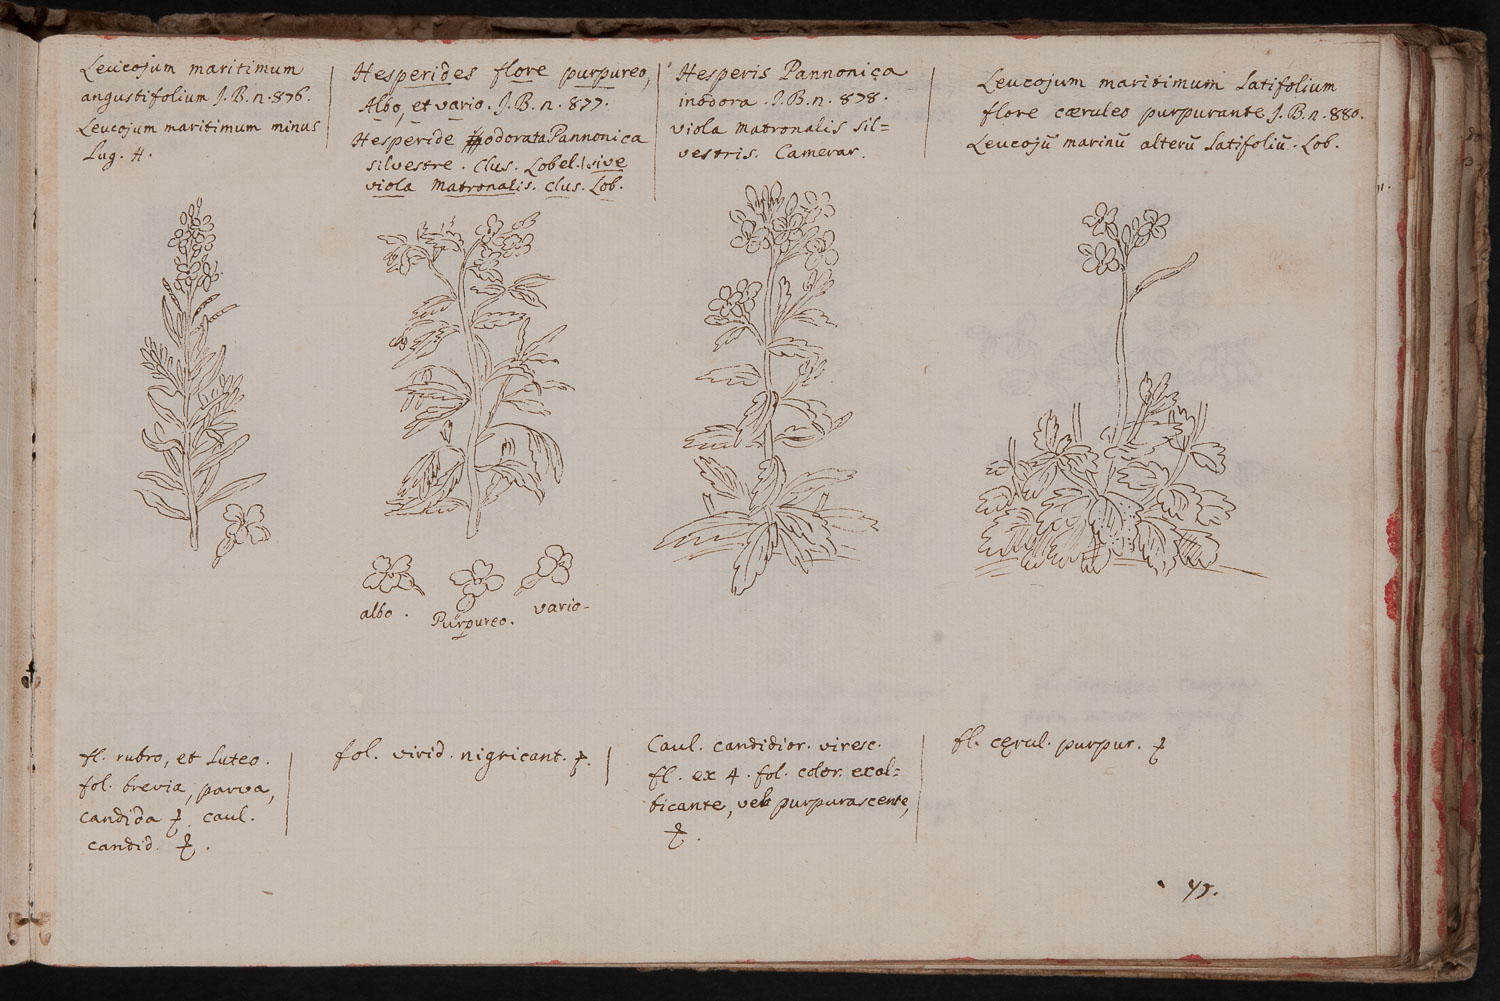 Leucojum maritimum
angustifolium J.B.n.876.
Leucojum maritimum minus
Lug. H.
Hesperides flore purpureo,
Albo, et vario. J.B.n.877.
Hesperide odorata Pannonica
silvestre. Clus. Lobel. sive
viola Matronalis. Clus. Lob.
Hesperis Pannonica
inodora. J.B.n.878.
viola Matronalis sil=
vestris. Camerar.
Leucojum maritimum Latifolium
flore cæruleo purpurante J.B.n.880.
Leucojū marinū alterū Latifoliū. Lob.
albo.
Purpureo.
vario.
fl. rubro, et Luteo.
fol. brevia, parva,
candida caul.
candid.
fol. virid. nigricant.
Caul. candidior. viresc.
fl. ex 4. fol. color. exal=
bicante, vel purpurascente,
fl. cęrul. purpur.